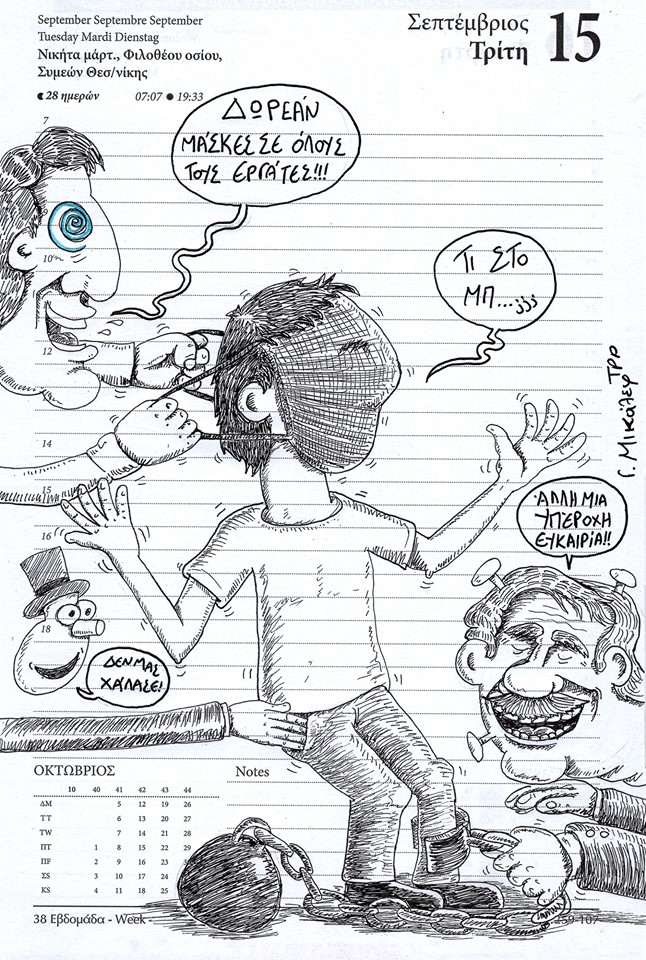 September Septembre September
Tuesday Mardi Dienstag
Νικήτα μάρτ., Φιλοθέου οσίου,
Συμεών Θεσ/νίκης
28 ημερών 07:07 ● 19:33
Σεπτέμβριος
Τρίτη
15
7
ΔΩΡΕΆΝ
ΜΆΣΚΕΣ ΣΕ ΌΛΟΥΣ
ΤΟΥΣ ΕΡΓΆΤΕΣ!!!
10
ΤΙ ΣΤΟ
ΜΠ...
12
14
15
16
18
Γ. Μικάλεφ
ΆΛΛΗ ΜΙΑ
ΥΠΈΡΟΧΗ
ΕΥΚΑΙΡΊΑ!!
ΔΕΝ ΜΑΣ
ΧΆΛΑΣΕ!
ΟΚΤΩΒΡΙΟΣ
10 40 41 42 43 44
ΔΜ 5 12 19 26
ΤΤ 6 13 20 27
TW 7 14 21 28
ΠΤ 1 8 15 22 29
ΠF 2 9 16 23
ΣS 3 10 17 24
KS 4 11 18 25
Notes
38 Εβδομάδα - Week